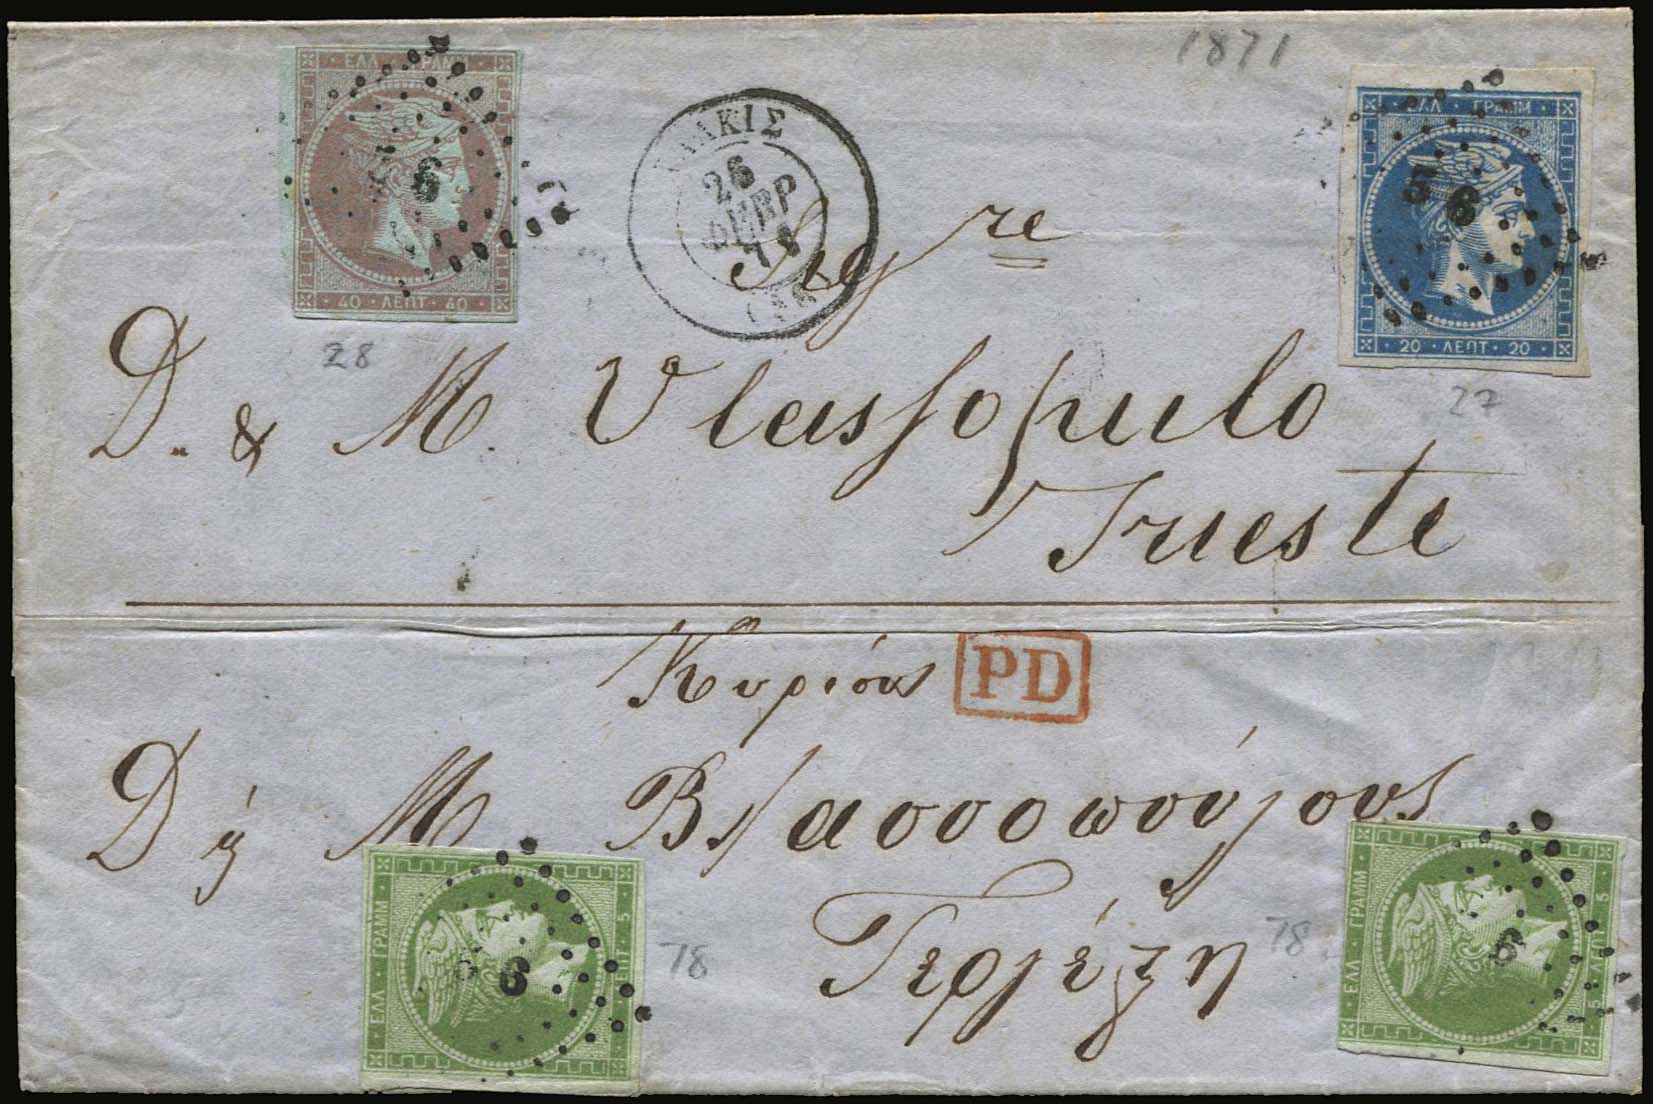 1871
ΕΛΛ ΓΡΑΜΜ
6
40 · ΛΕΠΤ · 40
28
ΧΑΛΚΙΣ
26
ΦΕΒΡ
71
ΕΛΛ · ΓΡΑΜΜ
56
20 · ΛΕΠΤ · 20
27
Sig^re
D. & M. Vlassopulo
Trieste
Κυρίους
PD
Δ ή Μ Βλασσοπούλους
Τεργέςην
ΕΛΛ ΓΡΑΜΜ
6
ΛΕΠΤ · 5
78
78
ΕΛΛ ΓΡΑΜΜ
6
5 · ΛΕΠΤ 5